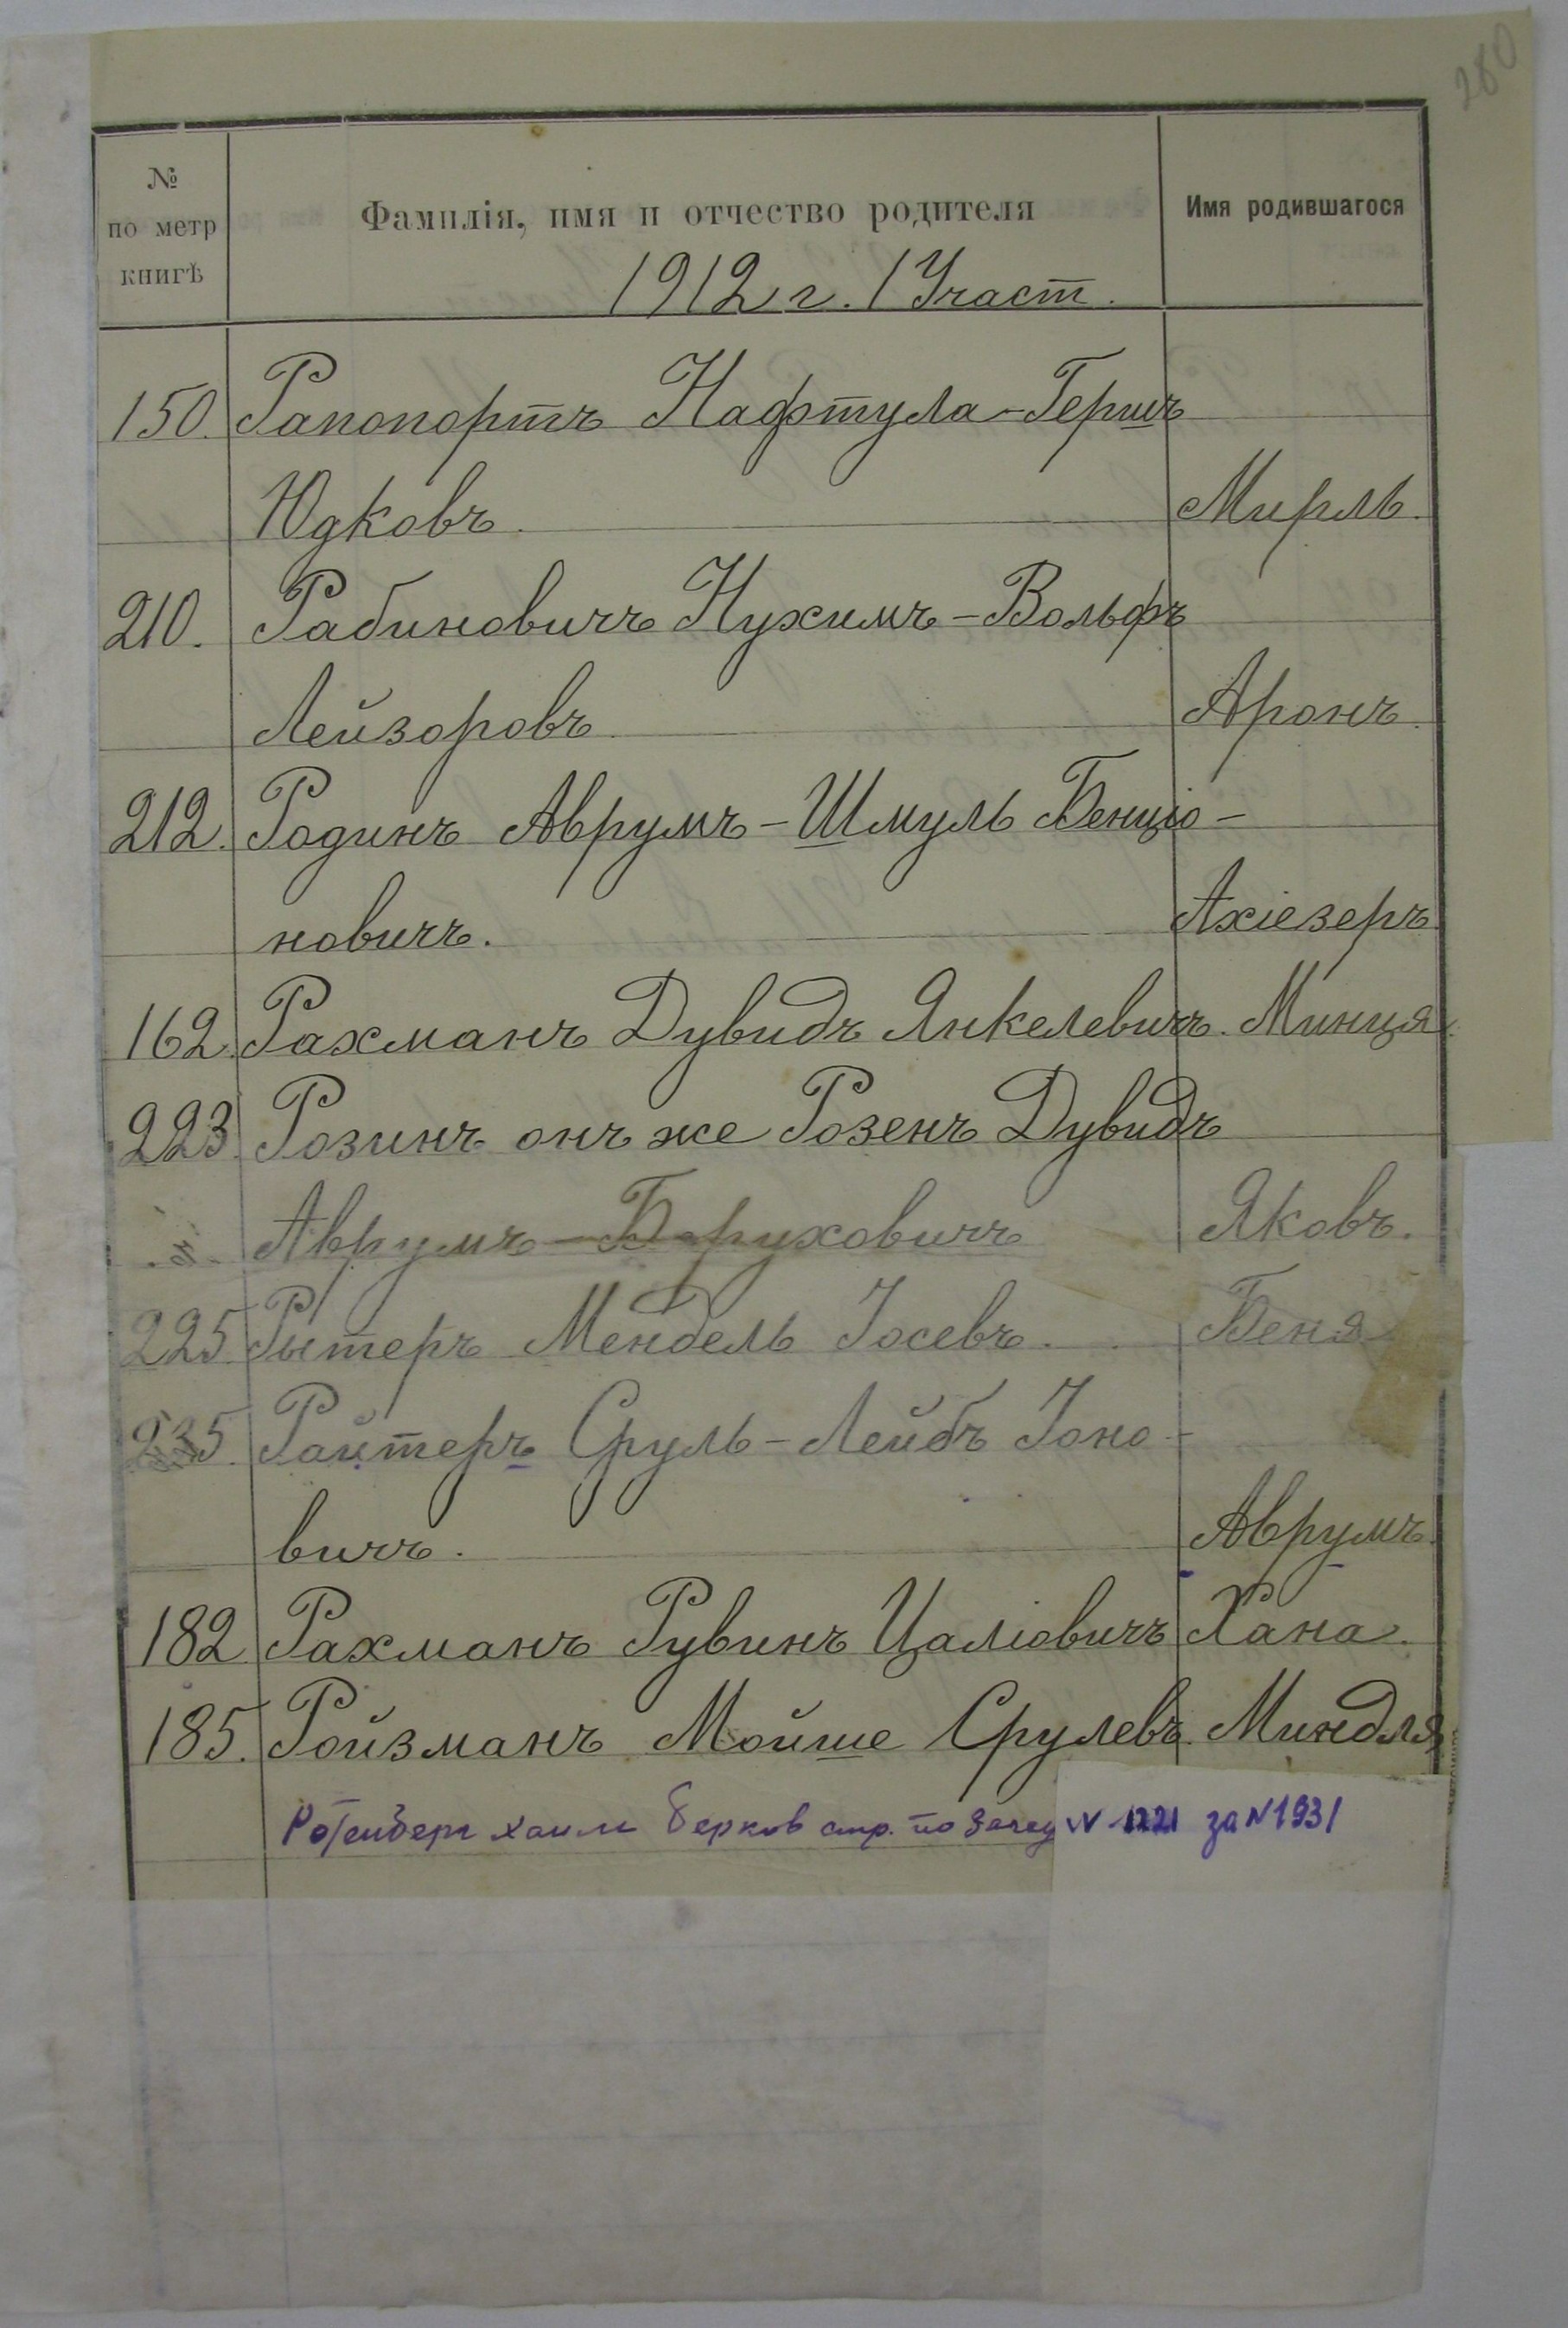 280
№
по метр
книгѣ
Фамилія, имя и отчество родителя
Имя родившагося
1912 г. 1 Участ.
150. Рапопортъ Нафтула-Гершъ
Юдковъ. Мирль.
210. Рабиновичъ Нухимъ-Вольфъ
Лейзоровъ Аронъ.
212. Родинъ Аврумъ-Шмуль Бенціо-
новичъ. Ахіезеръ
162. Рахманъ Дувидъ Янкелевичъ. Минця.
223. Розинъ онъ же Розенъ Дувидъ
Аврумъ-Боруховичъ Яковъ.
225 Рытеръ Мендель Іосевъ. Беня
235. Райтеръ Сруль-Лейбъ Іоно-
вичъ. Аврумъ.
182 Рахманъ Рувинъ Цаліовичъ Хана.
185. Ройзманъ Мойше Срулевъ. Миндля
Ротенберг Хаим Берков стр. по N 1221 за N 1931